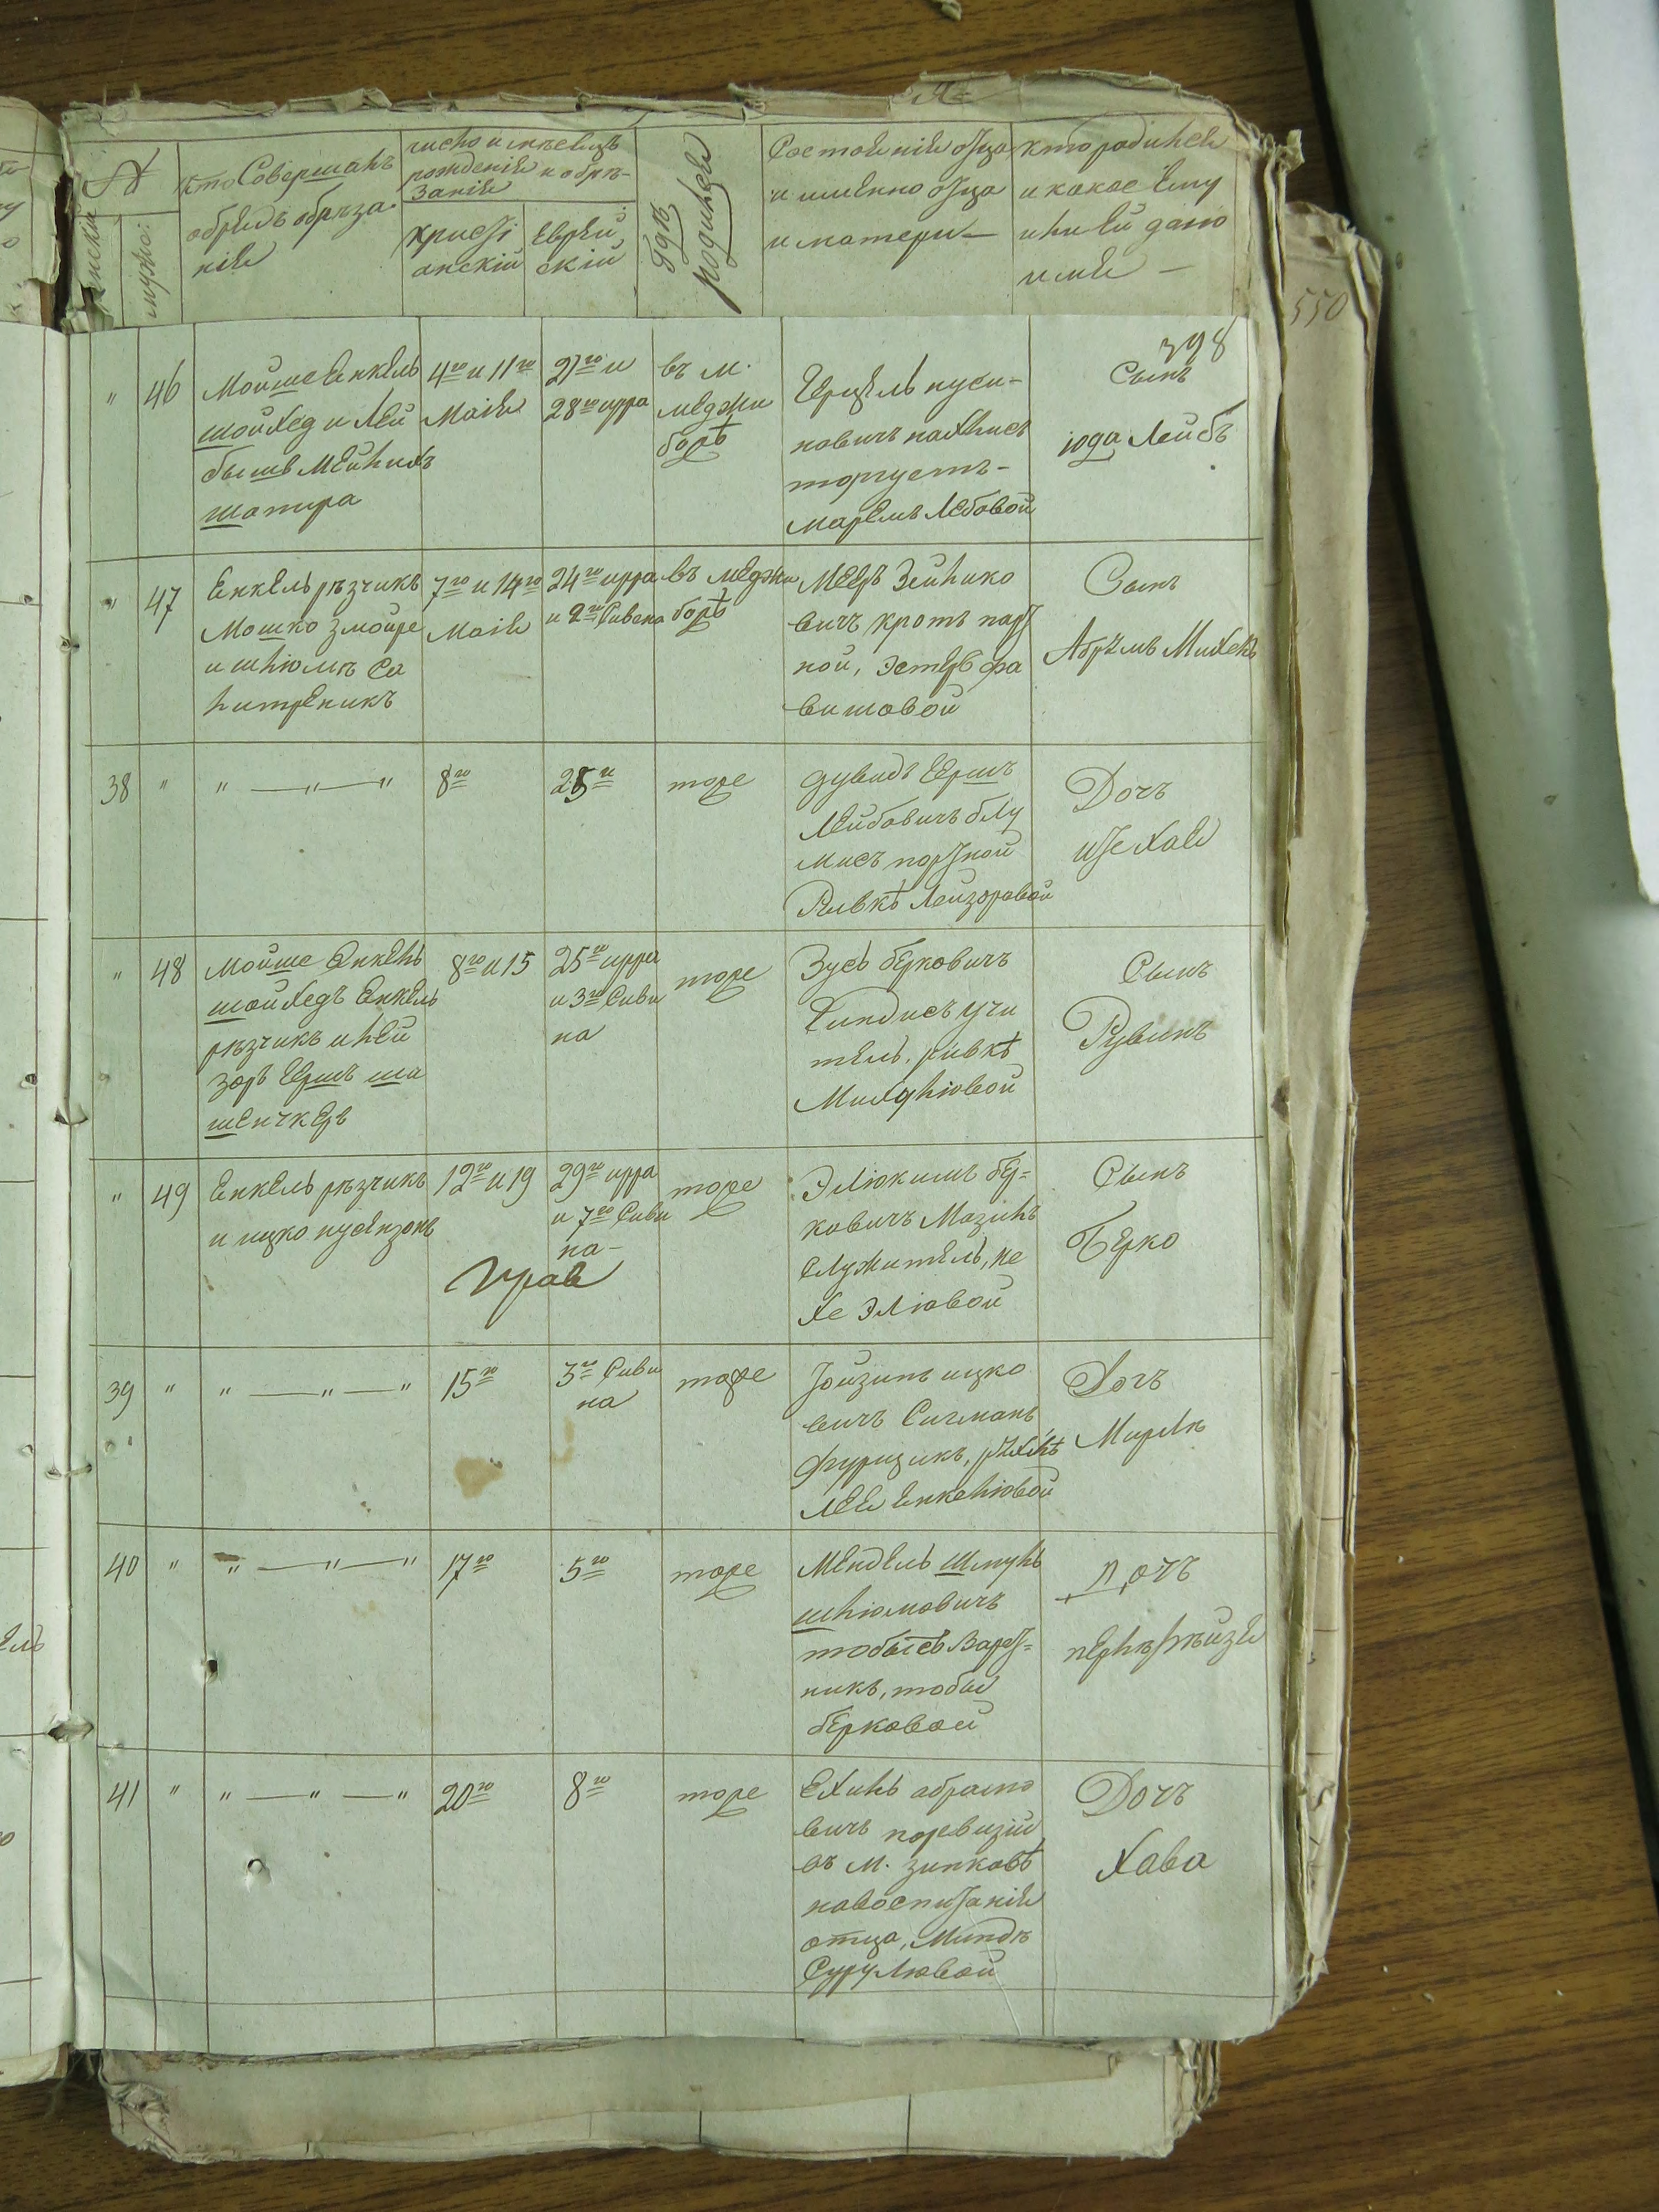 №
женски
мужес:
кто Совершалъ
обрядъ обрѣза
нія
число и мѣсецъ
рожденія и обрѣ-
занія
христі
анскій
Еврей
скій
гдѣ
родился
Состояніе отца
и имянно отца
и матери
кто родился
и какое Ему
или Ей дано
имя
550
398
" 46
Мойше Енкель
шойхед и Лей
бышъ Мейлихъ
шапира
4го и 11го
Маія
21го и
28го ирра
въ м.
меджи
божѣ
Гершель нуси-
новичъ
торгуетъ-
Марелъ Лебовой
Сынъ
іода Лейбъ
" 47
Енкель рѣзчикъ
Мошко
и шлюмъ Са
литреникъ
7го и 14го
Маія
24го ирра
и 2го Сивана
въ меджи
божѣ
Меер Зейлико
вичъ кротъ порт
ной, Эстеръ фа
вишовой
Сынъ
Абрѣмъ Михель
38 "
" — " — "
8го
25го
тоже
дувидъ Гершъ
Лейбовичъ блу
мисъ портной
Ривкѣ Лейзоровой
Дочъ
ите хая
" 48
Мойше Енкель
шойхедъ Енкель
рѣзчикъ и лей
зоръ Гершъ ша
шенчкеръ
8го и 15
25го ирра
и 3го Сиви
на
тоже
Зусь берковичъ
учи
тель, ривкѣ
Сынъ
Рувинъ
" 49
Енкель рѣзчикъ
и ицко нусензонъ
12го и 19
29го ирра
и 7го Сиви
на-
тоже
Элюкимъ бер-
ковичъ Мазилъ
Служитель, пе
хе Элювой
Сынъ
Берко
39 "
" — " — "
15го
3го Сиви
на
тоже
Іойзипъ ицко
вичъ Сигманъ
фурщикъ,
Лея Енкелювой
Дочъ
40 "
" — " — "
17го
5го
тоже
Мендель Шмуль
шлюмовичъ
никъ, тобы
берковой
Дочъ
перлъ рѣйзя
41 "
" — " — "
20го
8го
тоже
Ехиль абрамо
вичъ поревизій
въ м. зинковѣ
отца, Миндъ
Дочъ
Хава